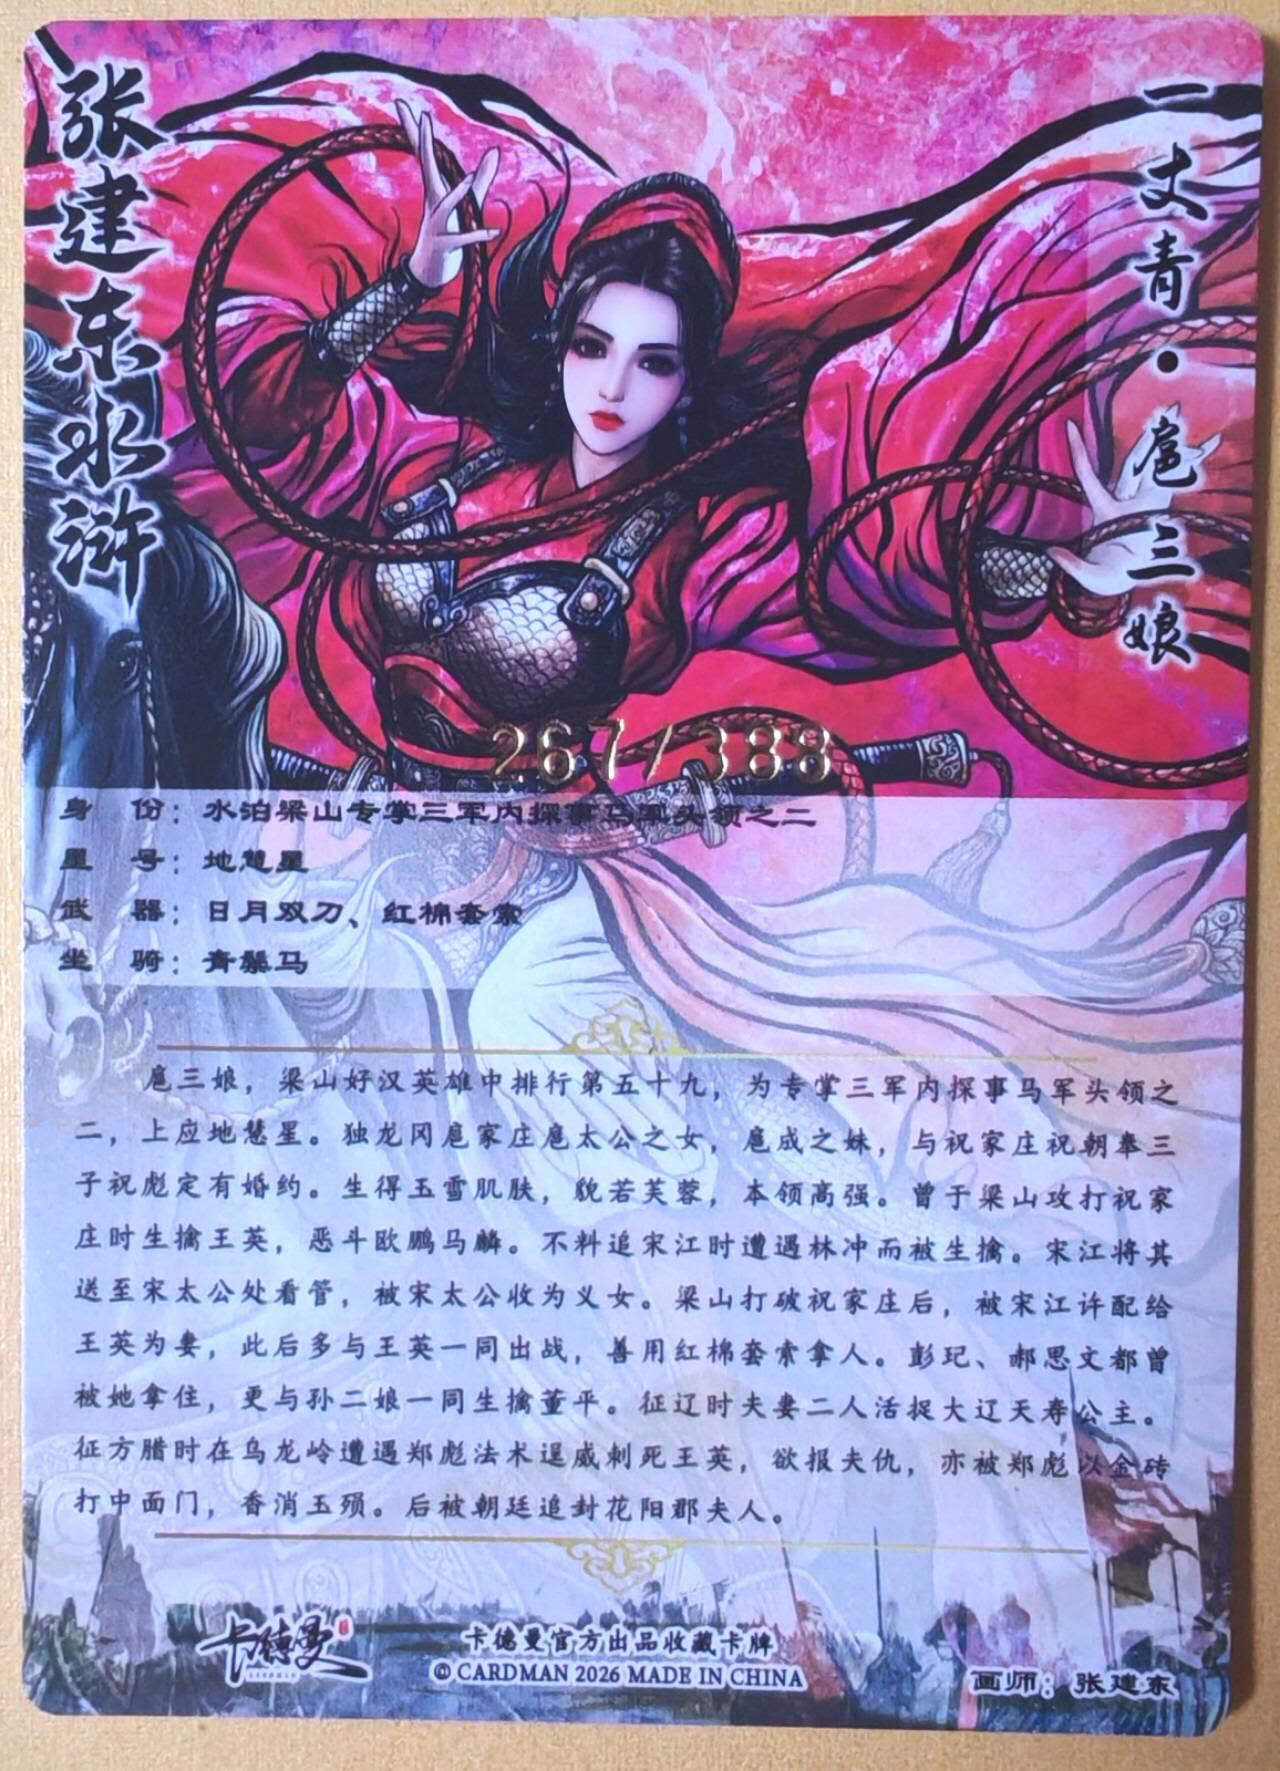 张建东水浒
一丈青·扈三娘
267/388
身 份：水泊梁山专掌三军内探事马军头领之二
星 号：地慧星
武 器：日月双刀、红棉套索
坐 骑：青鬃马
扈三娘，梁山好汉英雄中排行第五十九，为专掌三军内探事马军头领之
二，上应地慧星。独龙冈扈家庄扈太公之女，扈成之妹，与祝家庄祝朝奉三
子祝彪定有婚约。生得玉雪肌肤，貌若芙蓉，本领高强。曾于梁山攻打祝家
庄时生擒王英，恶斗欧鹏马麟。不料追宋江时遭遇林冲而被生擒。宋江将其
送至宋太公处看管，被宋太公收为义女。梁山打破祝家庄后，被宋江许配给
王英为妻，此后多与王英一同出战，善用红棉套索拿人。彭玘、郝思文都曾
被她拿住，更与孙二娘一同生擒董平。征辽时夫妻二人活捉大辽天寿公主。
征方腊时在乌龙岭遭遇郑彪法术逞威刺死王英，欲报夫仇，亦被郑彪以金砖
打中面门，香消玉殒。后被朝廷追封花阳郡夫人。
卡德曼
CARDMAN
卡德曼官方出品收藏卡牌
© CARDMAN 2026 MADE IN CHINA
画师：张建东